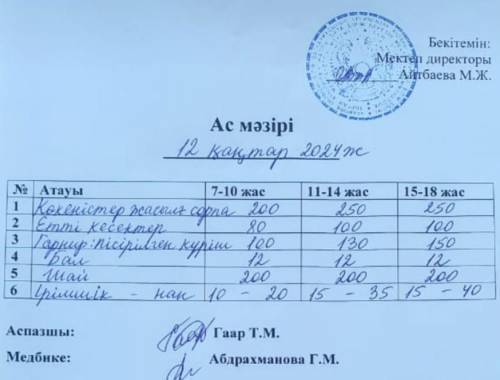 Бекітемін:
Мектеп директоры
Айтбаева М.Ж.
Ас мәзірі
12 қаңтар 2024ж
№ Атауы 7-10 жас 11-14 жас 15-18 жас
1 Көкөністер жасыл сорпа 200 250 250
2 Етті кесектер 80 100 100
3 Гарнир: пісірілген күріш 100 130 150
4 Бал 12 12 12
5 Шай 200 200 200
6 Ірімшік - нан 10 - 20 15 - 35 15 - 40
Аспазшы: Гаар Т.М.
Медбике: Абдрахманова Г.М.